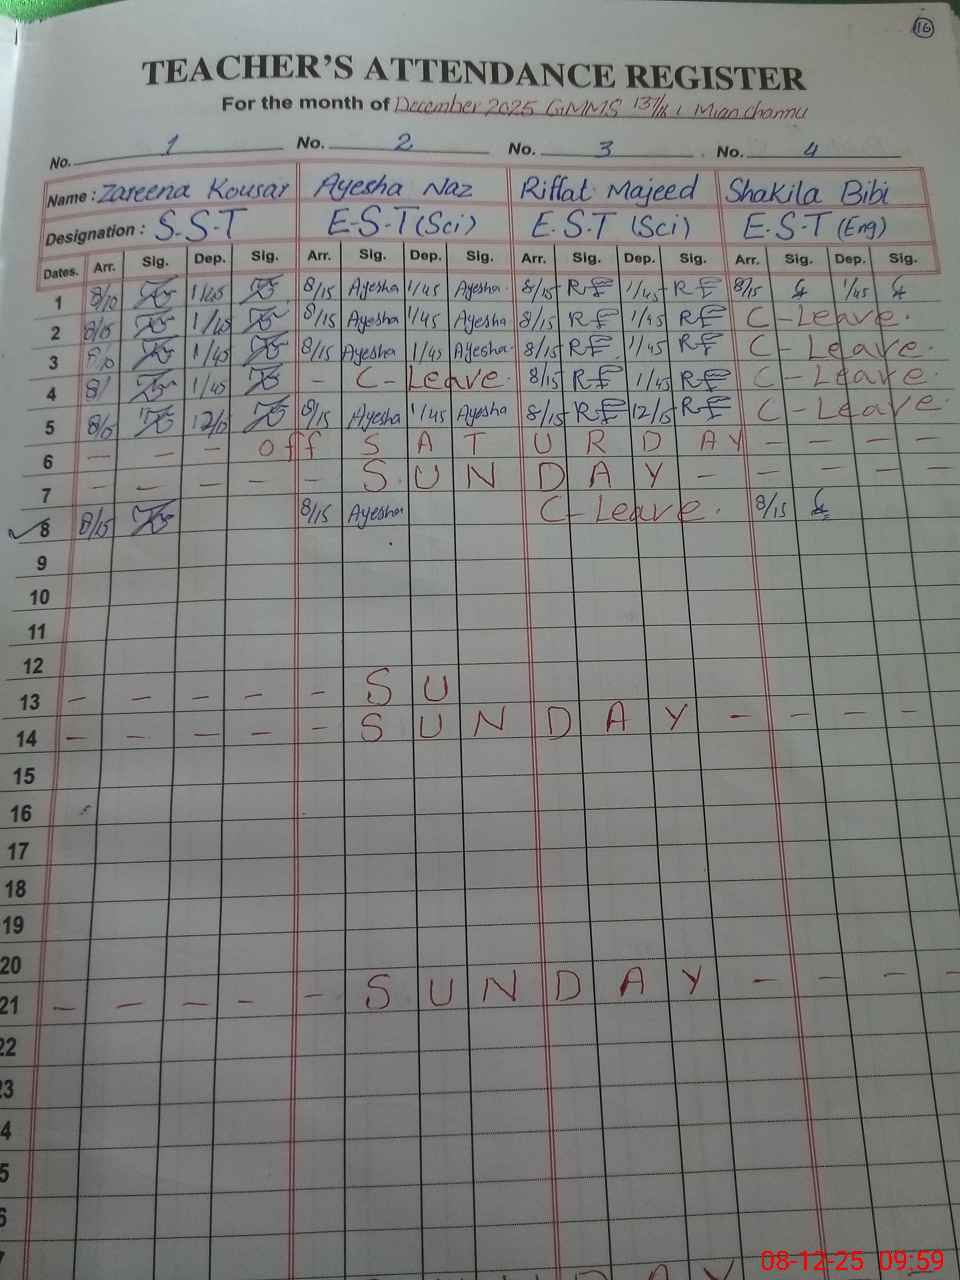 16
TEACHER'S ATTENDANCE REGISTER
For the month of December 2025 GMMS Mian channu
No. 1 No. 2 No. 3 No. 4
Name : Zareena Kousar Ayesha Naz Riffat Majeed Shakila Bibi
Designation : S.S.T E-S-T (Sci) E.S.T (Sci) E.S.T (Eng)
Dates. Arr. Sig. Dep. Sig. Arr. Sig. Dep. Sig. Arr. Sig. Dep. Sig. Arr. Sig. Dep. Sig.
1 8/10 1/45 8/15 Ayesha 1/45 Ayesha 8/15 1/45 8/15 1/45
2 1/45 8/15 Ayesha 1/45 Ayesha 8/15 1/45 C-Leave.
3 1/45 8/15 Ayesha 1/45 Ayesha 8/15 1/45 C-Leave.
4 8/ 1/45 - C-Leave. 8/15 1/45 C-Leave.
5 8/15 Ayesha 1/45 Ayesha 8/15 12/15 C-Leave.
6 - - - off S A T U R D A Y - - - -
7 - - - - - S U N D A Y - - - -
8 8/15 8/15 Ayesha C-Leave. 8/15
9
10
11
12
13 - - - - - S U
14 - - - - - S U N D A Y - - - -
15
16
17
18
19
20
21 - - - - - S U N D A Y - - - -
22
23
4
5
6
7
D A Y
08-12-25 09:59